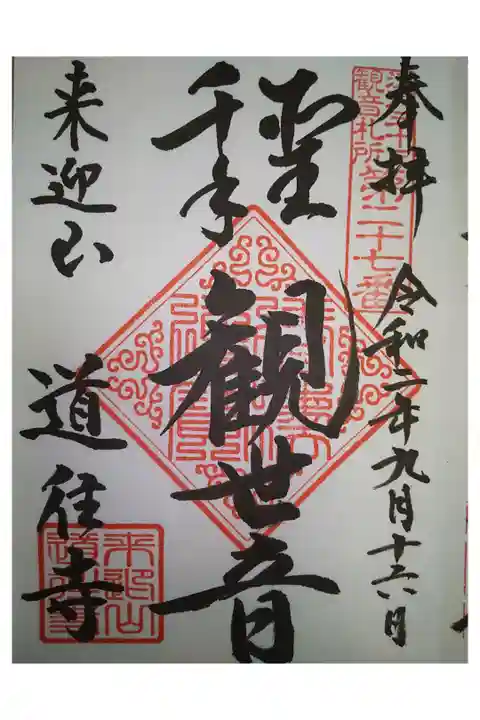 奉拝
観音札所第二十七番
令和二年九月十六日
聖
千手
観世音
来迎山
道往寺
来迎山